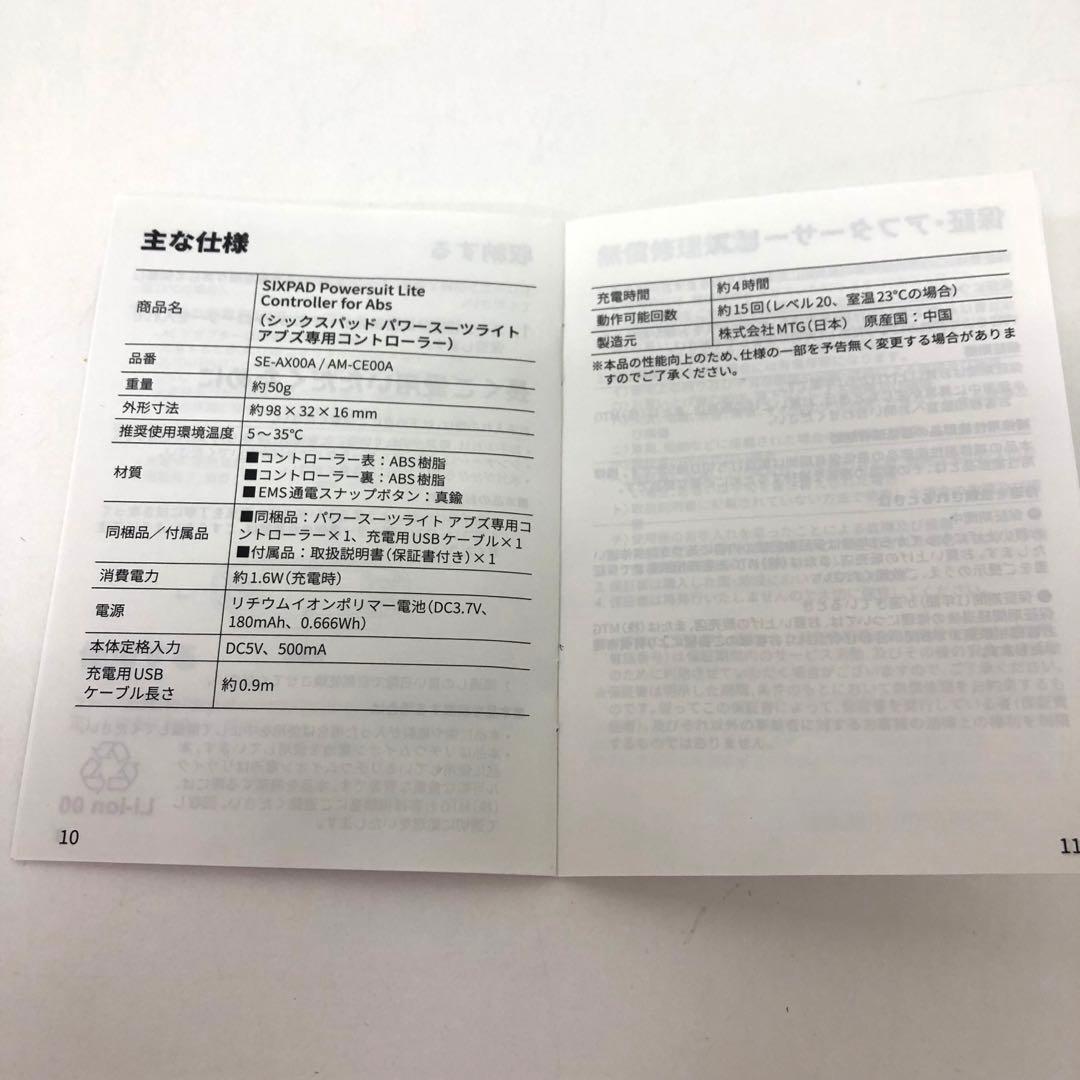 主な仕様
商品名
SIXPAD Powersuit Lite
Controller for Abs
(シックスパッド パワースーツライト
アブズ専用コントローラー)
品番
SE-AX00A / AM-CE00A
重量
約50g
外形寸法
約98×32×16mm
推奨使用環境温度
5〜35℃
材質
■コントローラー表：ABS樹脂
■コントローラー裏：ABS樹脂
■EMS通電スナップボタン：真鍮
同梱品／付属品
■同梱品：パワースーツライト アブズ専用コ
ントローラー×1、充電用USBケーブル×1
■付属品：取扱説明書(保証書付き)×1
消費電力
約1.6W(充電時)
電源
リチウムイオンポリマー電池(DC3.7V、
180mAh、0.666Wh)
本体定格入力
DC5V、500mA
充電用USB
ケーブル長さ
約0.9m
10
充電時間
約4時間
動作可能回数
約15回(レベル20、室温23℃の場合)
製造元
株式会社MTG(日本) 原産国：中国
※本品の性能向上のため、仕様の一部を予告無く変更する場合がありま
すのでご了承ください。
11